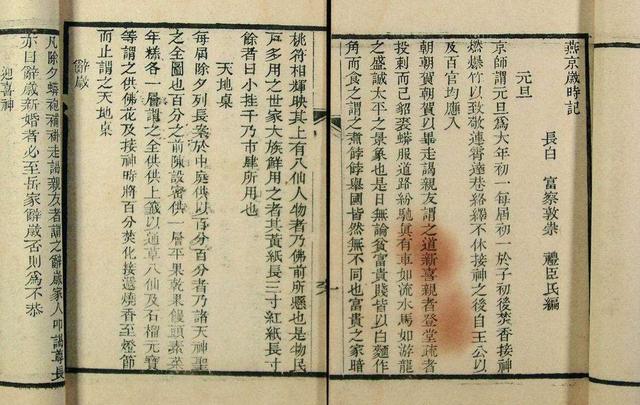 燕京歲時記
長白 富察敦崇 禮臣氏編
元旦
京師謂元旦爲大年初一每屆初一於子初後焚香接神
燃爆竹以致敬連霄達巷絡繹不休接神之後自王公以
及百官均應入
朝朝賀朝賀以畢走謁親友謂之道新喜親者登堂疏者
投刺而已貂裘蟒服道路紛馳眞有車如流水馬如游龍
之盛誠太平之景象也是日無論貧富貴賤皆以白麵作
角而食之謂之煮餑餑舉國皆然無不同也富貴之家暗
桃符相輝映其上有八仙人物者乃佛前所懸也是物民
戶多用之世家大族鮮用之者其黃紙長三寸紅紙長寸
餘者曰小挂千乃市肆所用也
天地桌
每屆除夕列長案於中庭供以百分百分者乃諸天神聖
之全圖也百分之前陳設蜜供一層苹果乾果饅頭素菜
年糕各一層謂之全供供上籤以通草八仙及石榴元寶
等謂之供佛花及接神時將百分焚化接遞燒香至燈節
而止謂之天地桌
辭歲
凡除夕蟒袍補褂走謁親友者謂之辭歲家人叩謁尊長
亦曰辭歲新婚者必至岳家辭歲否則爲不恭
迎喜神